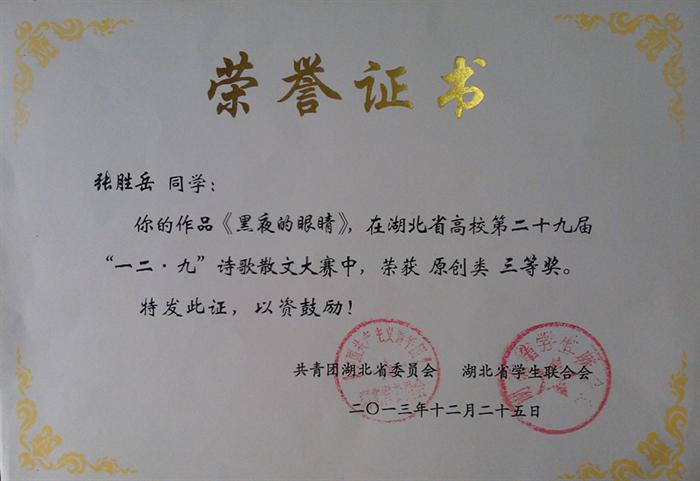 荣誉证书
张胜岳 同学：
你的作品《黑夜的眼睛》，在湖北省高校第二十九届
“一二·九”诗歌散文大赛中，荣获 原创类 三等奖。
特发此证，以资鼓励！
共青团湖北省委员会 湖北省学生联合会
二〇一三年十二月二十五日